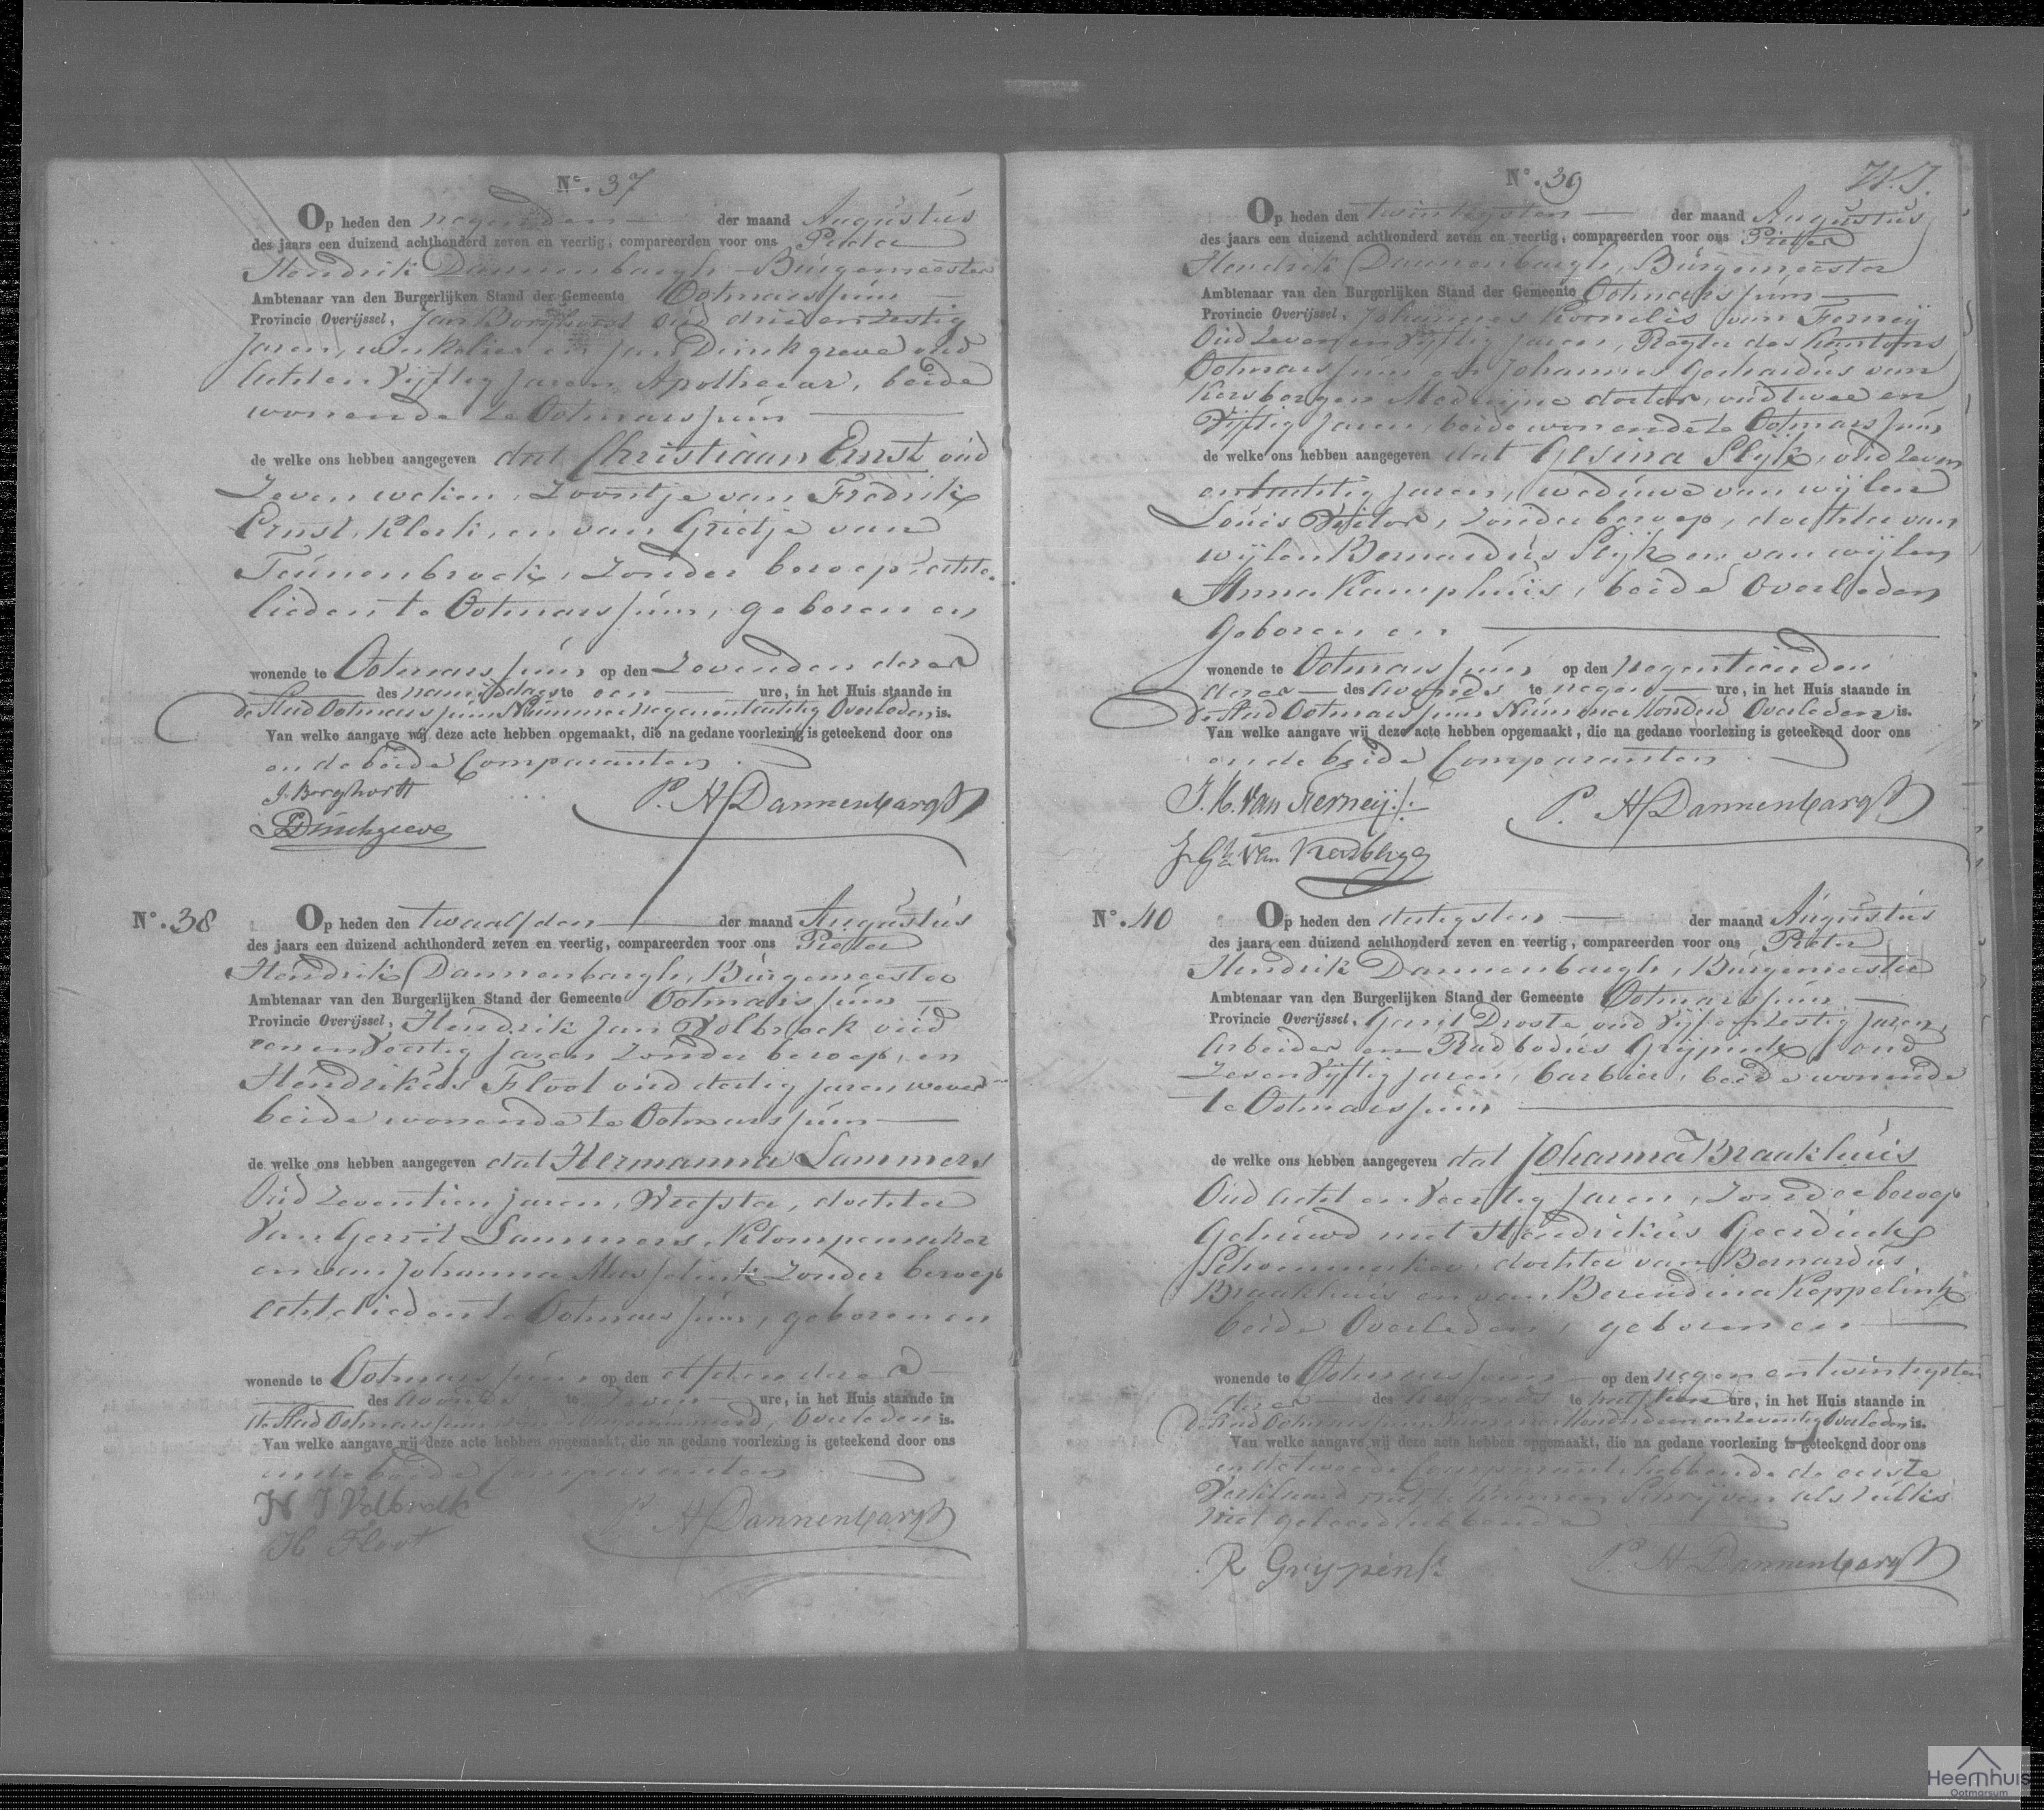 N°. 37
Op heden den negenden der maand Augustus
des jaars een duizend achthonderd zeven en veertig, compareerden voor ons Pieter
Hendrik Dannenbargh Burgemeester
Ambtenaar van den Burgerlijken Stand der Gemeente Ootmarssum
Provincie Overijssel, Jan Borghorst oud drie en zestig
Jaren, winkelier en Jan Dinkgreve oud
Acht en Vijftig Jaren Apothecar, beide
wonende te Ootmarssum
de welke ons hebben aangegeven dat Christiaan Ernst oud
Zeven weken, Zoontje van Fredrik
Ernst, Klerk, en van Grietje van
Teunenbroek, Zonder beroep, echte
lieden te Ootmarssum, geboren en
wonende te Ootmarssum op den Zevenden dezer
des namiddags te een ure, in het Huis staande in
de Stad Ootmarssum Nummer negenentachtig Overleden is.
Van welke aangave wij deze acte hebben opgemaakt, die na gedane voorlezing is geteekend door ons
en de beide Comparanten
J. Borghorst
P. H. Dannenbargh
Dinkgreve
N°. 38
Op heden den twaalfden der maand Augustus
des jaars een duizend achthonderd zeven en veertig, compareerden voor ons Pieter
Hendrik Dannenbargh, Burgemeester
Ambtenaar van den Burgerlijken Stand der Gemeente Ootmarssum
Provincie Overijssel, Hendrik Jan Volbroek oud
een en Veertig Jaren Zonder beroep, en
Hendrikus Floot oud dertig Jaren, wever
beide wonende te Ootmarssum
de welke ons hebben aangegeven dat Hermanna Lammers
Oud Zeventien jaren, Weefster, dochter
Van Gerrit Lammers, Klompemaker
en van Johanna Zonder beroep
echtelieden te Ootmarssum, geboren en
wonende te Ootmarssum op den elfden dezer
des avonds te Zeven ure, in het Huis staande in
de Stad Ootmarssum Overleden is.
Van welke aangave wij deze acte hebben opgemaakt, die na gedane voorlezing is geteekend door ons
en de beide Comparanten
H J Volbroek
P. H. Dannenbargh
H Floot
N°. 39
Op heden den twintigsten der maand Augustus
des jaars een duizend achthonderd zeven en veertig, compareerden voor ons Pieter
Hendrik Dannenbargh, Burgemeester
Ambtenaar van den Burgerlijken Stand der Gemeente Ootmarssum
Provincie Overijssel, Johannes Kornelis van Ferneij
Oud Zeven en Vijftig Jaren, Regter des Kantons
Ootmarssum en Johannes Gerhardus van
Kersbergen Medicijne doctor, oud twee en
Vijftig Jaren, beide wonende te Ootmarssum
de welke ons hebben aangegeven dat Gesina Slijk, oud Zeven
en tachtig Jaren, weduwe van wijlen
Louis, Zonder beroep, dochter van
wijlen Bernardus Slijk en van wijlen
Anna Kamphuis, beide Overleden
Geboren en
wonende te Ootmarssum op den negentienden
dezer des avonds te negen ure, in het Huis staande in
de Stad Ootmarssum Nummer honderd Overleden is.
Van welke aangave wij deze acte hebben opgemaakt, die na gedane voorlezing is geteekend door ons
en de beide Comparanten
J. K. van Ferneij
P. H. Dannenbargh
J. Gh. van Kersbergen
N°. 40
Op heden den dertigsten der maand Augustus
des jaars een duizend achthonderd zeven en veertig, compareerden voor ons Pieter
Hendrik Dannenbargh, Burgemeester
Ambtenaar van den Burgerlijken Stand der Gemeente Ootmarssum
Provincie Overijssel, Gerrit Droste oud Vijf en Zestig Jaren,
Arbeider en Radbodus Grijpink, oud
Zes en Vijftig Jaren, barbier, beide wonende
te Ootmarssum
de welke ons hebben aangegeven dat Johanna Braakhuis
Oud Acht en Veertig Jaren, Zonder beroep
Gehuwd met Hendrikus Geerdink
Schoenmaker, dochter van Bernardus
Braakhuis en van Berendina Keppelink
beide Overleden, geboren en
wonende te Ootmarssum op den negen en twintigsten
dezer des te half ure, in het Huis staande in
de Stad Ootmarssum Nummer Honderd een en Zeventig Overleden is.
Van welke aangave wij deze acte hebben opgemaakt, die na gedane voorlezing is geteekend door ons
en de tweede Comparant hebbende de eerste
Verklaard niet te kunnen Schrijven als zulks
niet geleerd hebbende
R Grypink
P. H. Dannenbargh
Heemhuis
Ootmarsum